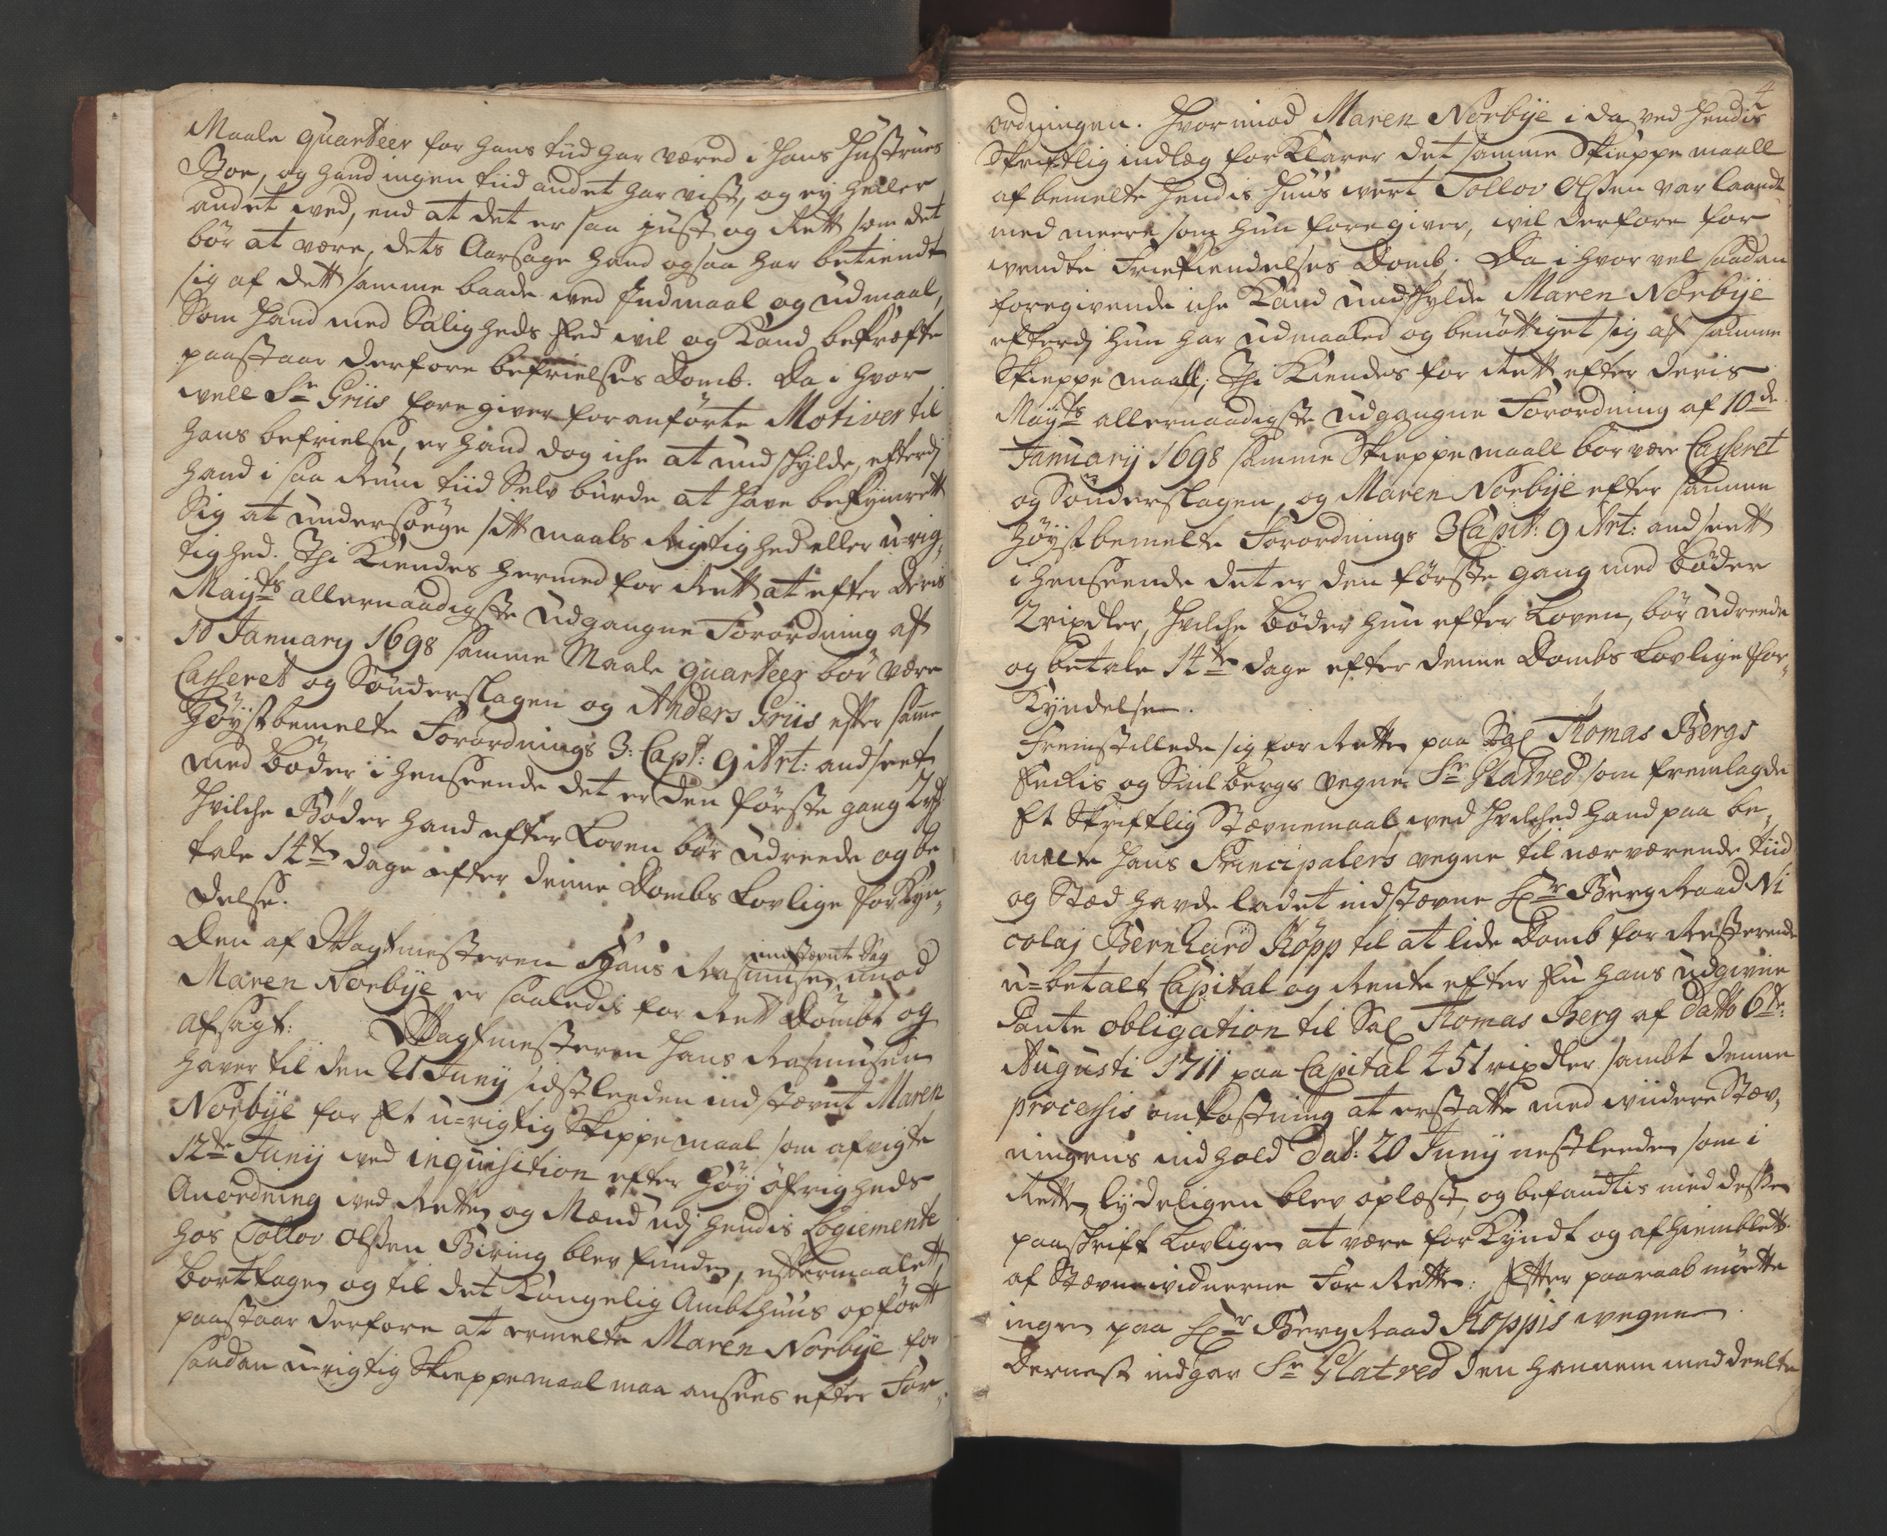 Maale quarteer for hans tiid har væred i hans Hustrues
Boe, og hand ingen tiid andet har vist, og ey heller
andet wed, end at det er saa just og Rett som det
bör at være, dets Aarsage hand ogsaa har betiendt
sig af dett samme baade wed Indmaal og udmaal,
Som hand med Saligheds Eed wil og Kand bekræfte
paastaar derfore befrielses Domb. Da i hvor
well Sr Griis foregiver foranförte Motiver til
hans befrielse, er hand dog iche at undskylde, efterdj
hand i saa Rum tiid Selv burde at have bekymrett
Sig at undersöege sitt maals Rigtighed eller u-rig,
tighed. Thi Kiendes hermed for Rett at efter Deris
Mayts allernaadigste udgangne Forordning af
10 January 1698 samme Maale quarteer bör være
Casseret og Sönderslagen og Anders Griis efter samme
Höystbemelte Forordnings 3: Capt: 9 Art: andseet
med böder i henseende det er den förste gang 2 rdr
hvilche Böder hand efter Loven bör udreede og be
tale 14ten dage efter denne Dombs lovlige forkyn,
delse.
Den af Wagtmesteren Hans Rasmusen indstævnte Sag imod
Maren Norbye er saaledis for Rett Dömbt og
afsagt: Wagtmesteren Hans Rasmusen
haver til den 21 Juny sidstleeden indstævnt Maren
Norbye for Et u-rigtig Skippemaal som afvigte
12de Juny wed inquisition efter Höy öfrigheds
Anordning wed Retten og Mænd udj hendis Logiemente
hos Tollov Olssen Biring blev funden, eftermaalet,
borttagen og til det Kongelig Ambthuus opfört
paastaar derfore at ermelte Maren Norbye for
saadan u-rigtig Skieppemaal maa ansees efter For,
4
ordningen. Hvorimod Maren Norbye i da ved hendis
Skriftlig indlæg forklarer det samme Skieppe maall
af bemelte hendis Huus wert Tollov Olssen var laandt
med meere som hun foregiver, wil derfore for
wendte Friekiendelses Domb. Da i hvor vel saadan
foregivende iche Kand undskylde Maren Norbye
efterdj hun har udmaaled og benöttiget sig af samme
Skieppe maall; Thi Kiendes for Rett efter Deris
Mayts allernaadigste udgangne Forordning af 10de
January 1698 samme Skieppemaall bör være Casseret
og Sönderslagen, og Maren Norbye efter samme
Höystbemelte Forordnings 3 Capit: 9 Art: andseett
i henseende det er den förste gang med böder
2 rixdler, hvilche böder hun efter Loven, bör udreede
og betale 14ten dage efter denne Dombs lovlige for,
Kyndelse.
Fremstillede sig for Retten paa Sal Thomas Bergs
Enkis og Bergs vegne Sr Glatved som fremlagde
Et Skriftlig Stævnemaal, wed hvilched hand paa be,
melte hans Principalers vegne til nærværende tiid
og Stæd havde ladet indstævne Hr Berg Raad Ni
colaj Bernhard Köpp til at lide Domb for Resterende
u-betalt Capital og Rente efter En hans udgivne
Pante obligation til Sal Thomas Berg af Datto 6te
Augusti 1711 paa Capital 451 rixdler sambt denne
processis omkostning at erstatte med widere Stæv,
ningens indhold Dat: 20 Juny nestleeden som i
Retten lydeligen blev oplæst, og befandtis med dessen
paaskrift lovligen at være forkyndt og afhiemblett
af Stævnewidnerne for Retten: Efter paaraab mötte
ingen paa Hr Berg Raad Koppis wegne
Dernest indgav Sr Glatved Den hannem meddeelte